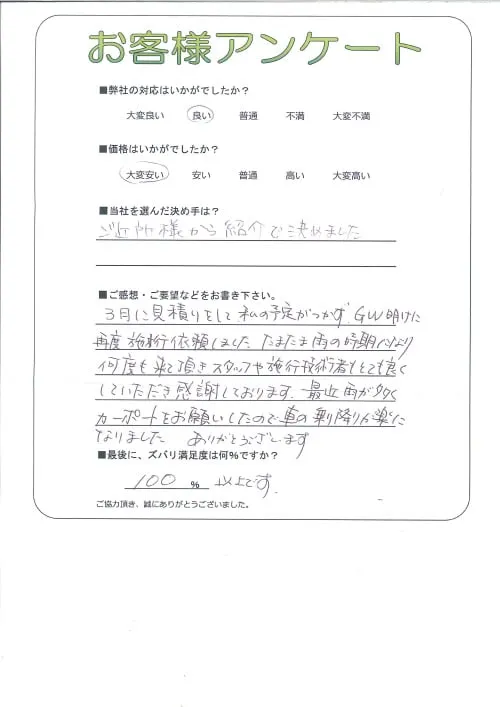 お客様アンケート
■弊社の対応はいかがでしたか？
大変良い 良い 普通 不満 大変不満
■価格はいかがでしたか？
大変安い 安い 普通 高い 大変高い
■当社を選んだ決め手は？
ご近所様から紹介で決めました
■ご感想・ご要望などをお書き下さい。
3月に見積りをして私の予定がつかず GW明けに
再度施行依頼しました たまたま雨の時期になり
何度も来て頂きスタッフや施行技術者もとても良く
していただき感謝しております。最近雨が多く
カーポートをお願いしたので車の乗り降りが楽に
なりました ありがとうございます
■最後に、ズバリ満足度は何％ですか？
100 ％ 以上です。
ご協力頂き、誠にありがとうございました。